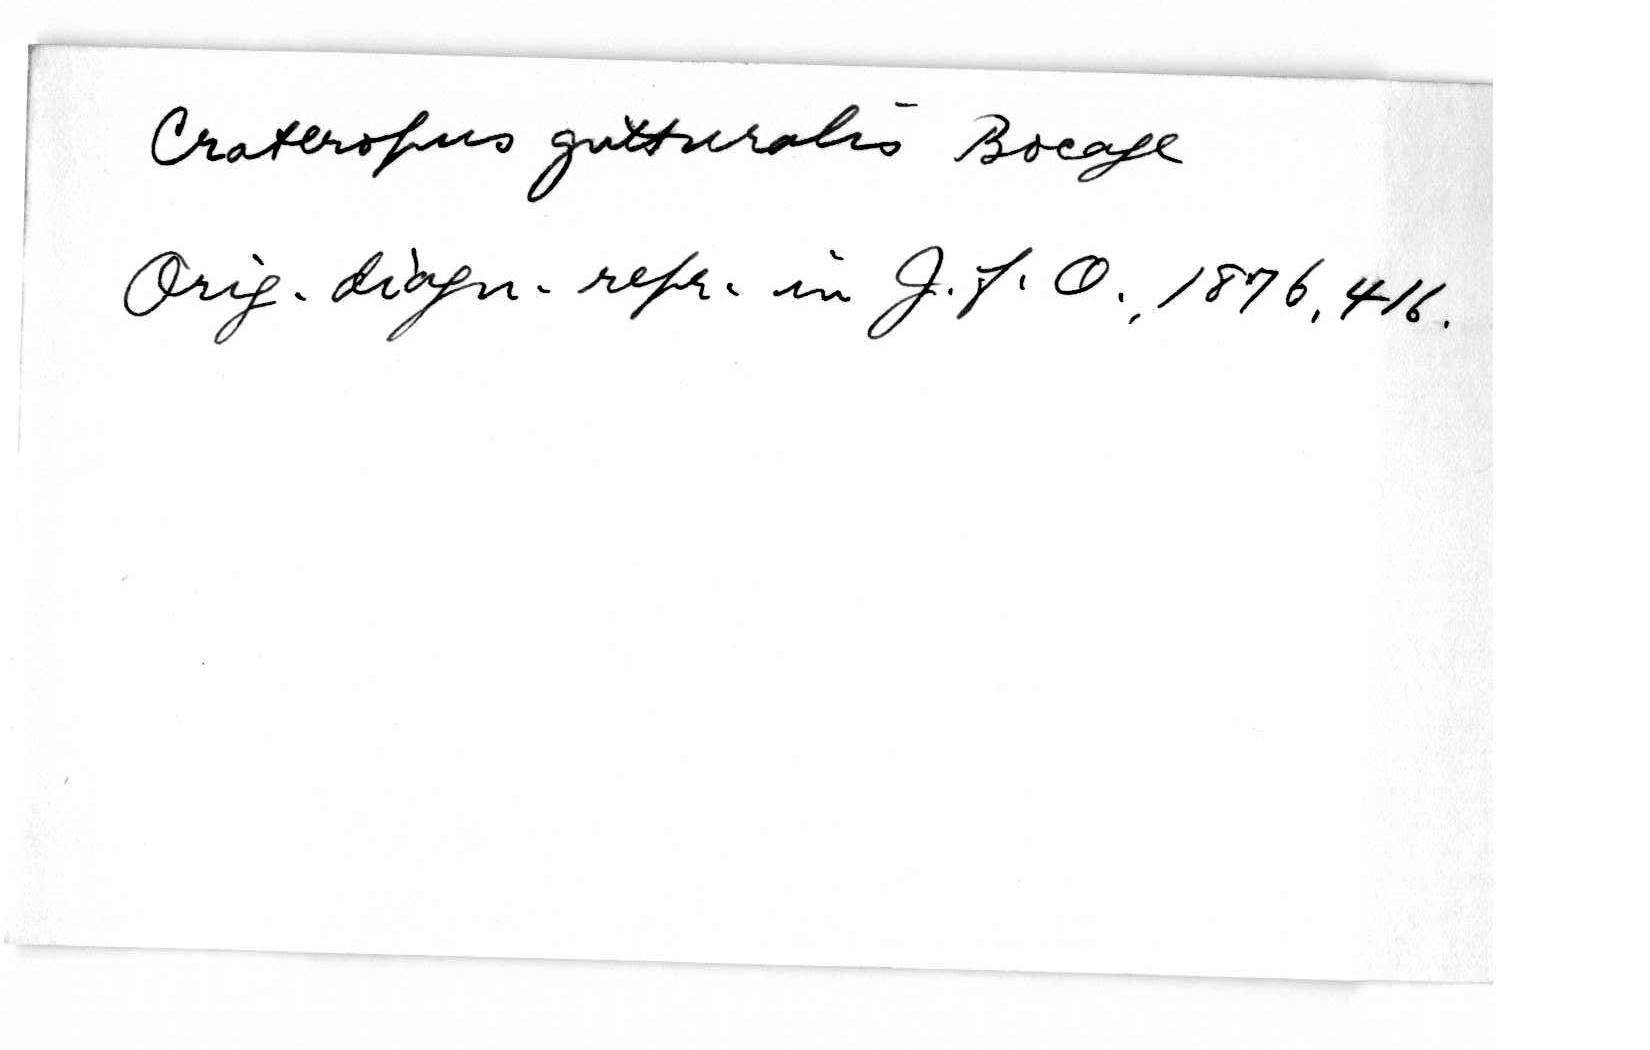 Crateropus gutturalis Bocage
Orig. diagn. repr. in J. f. O., 1876, 416.